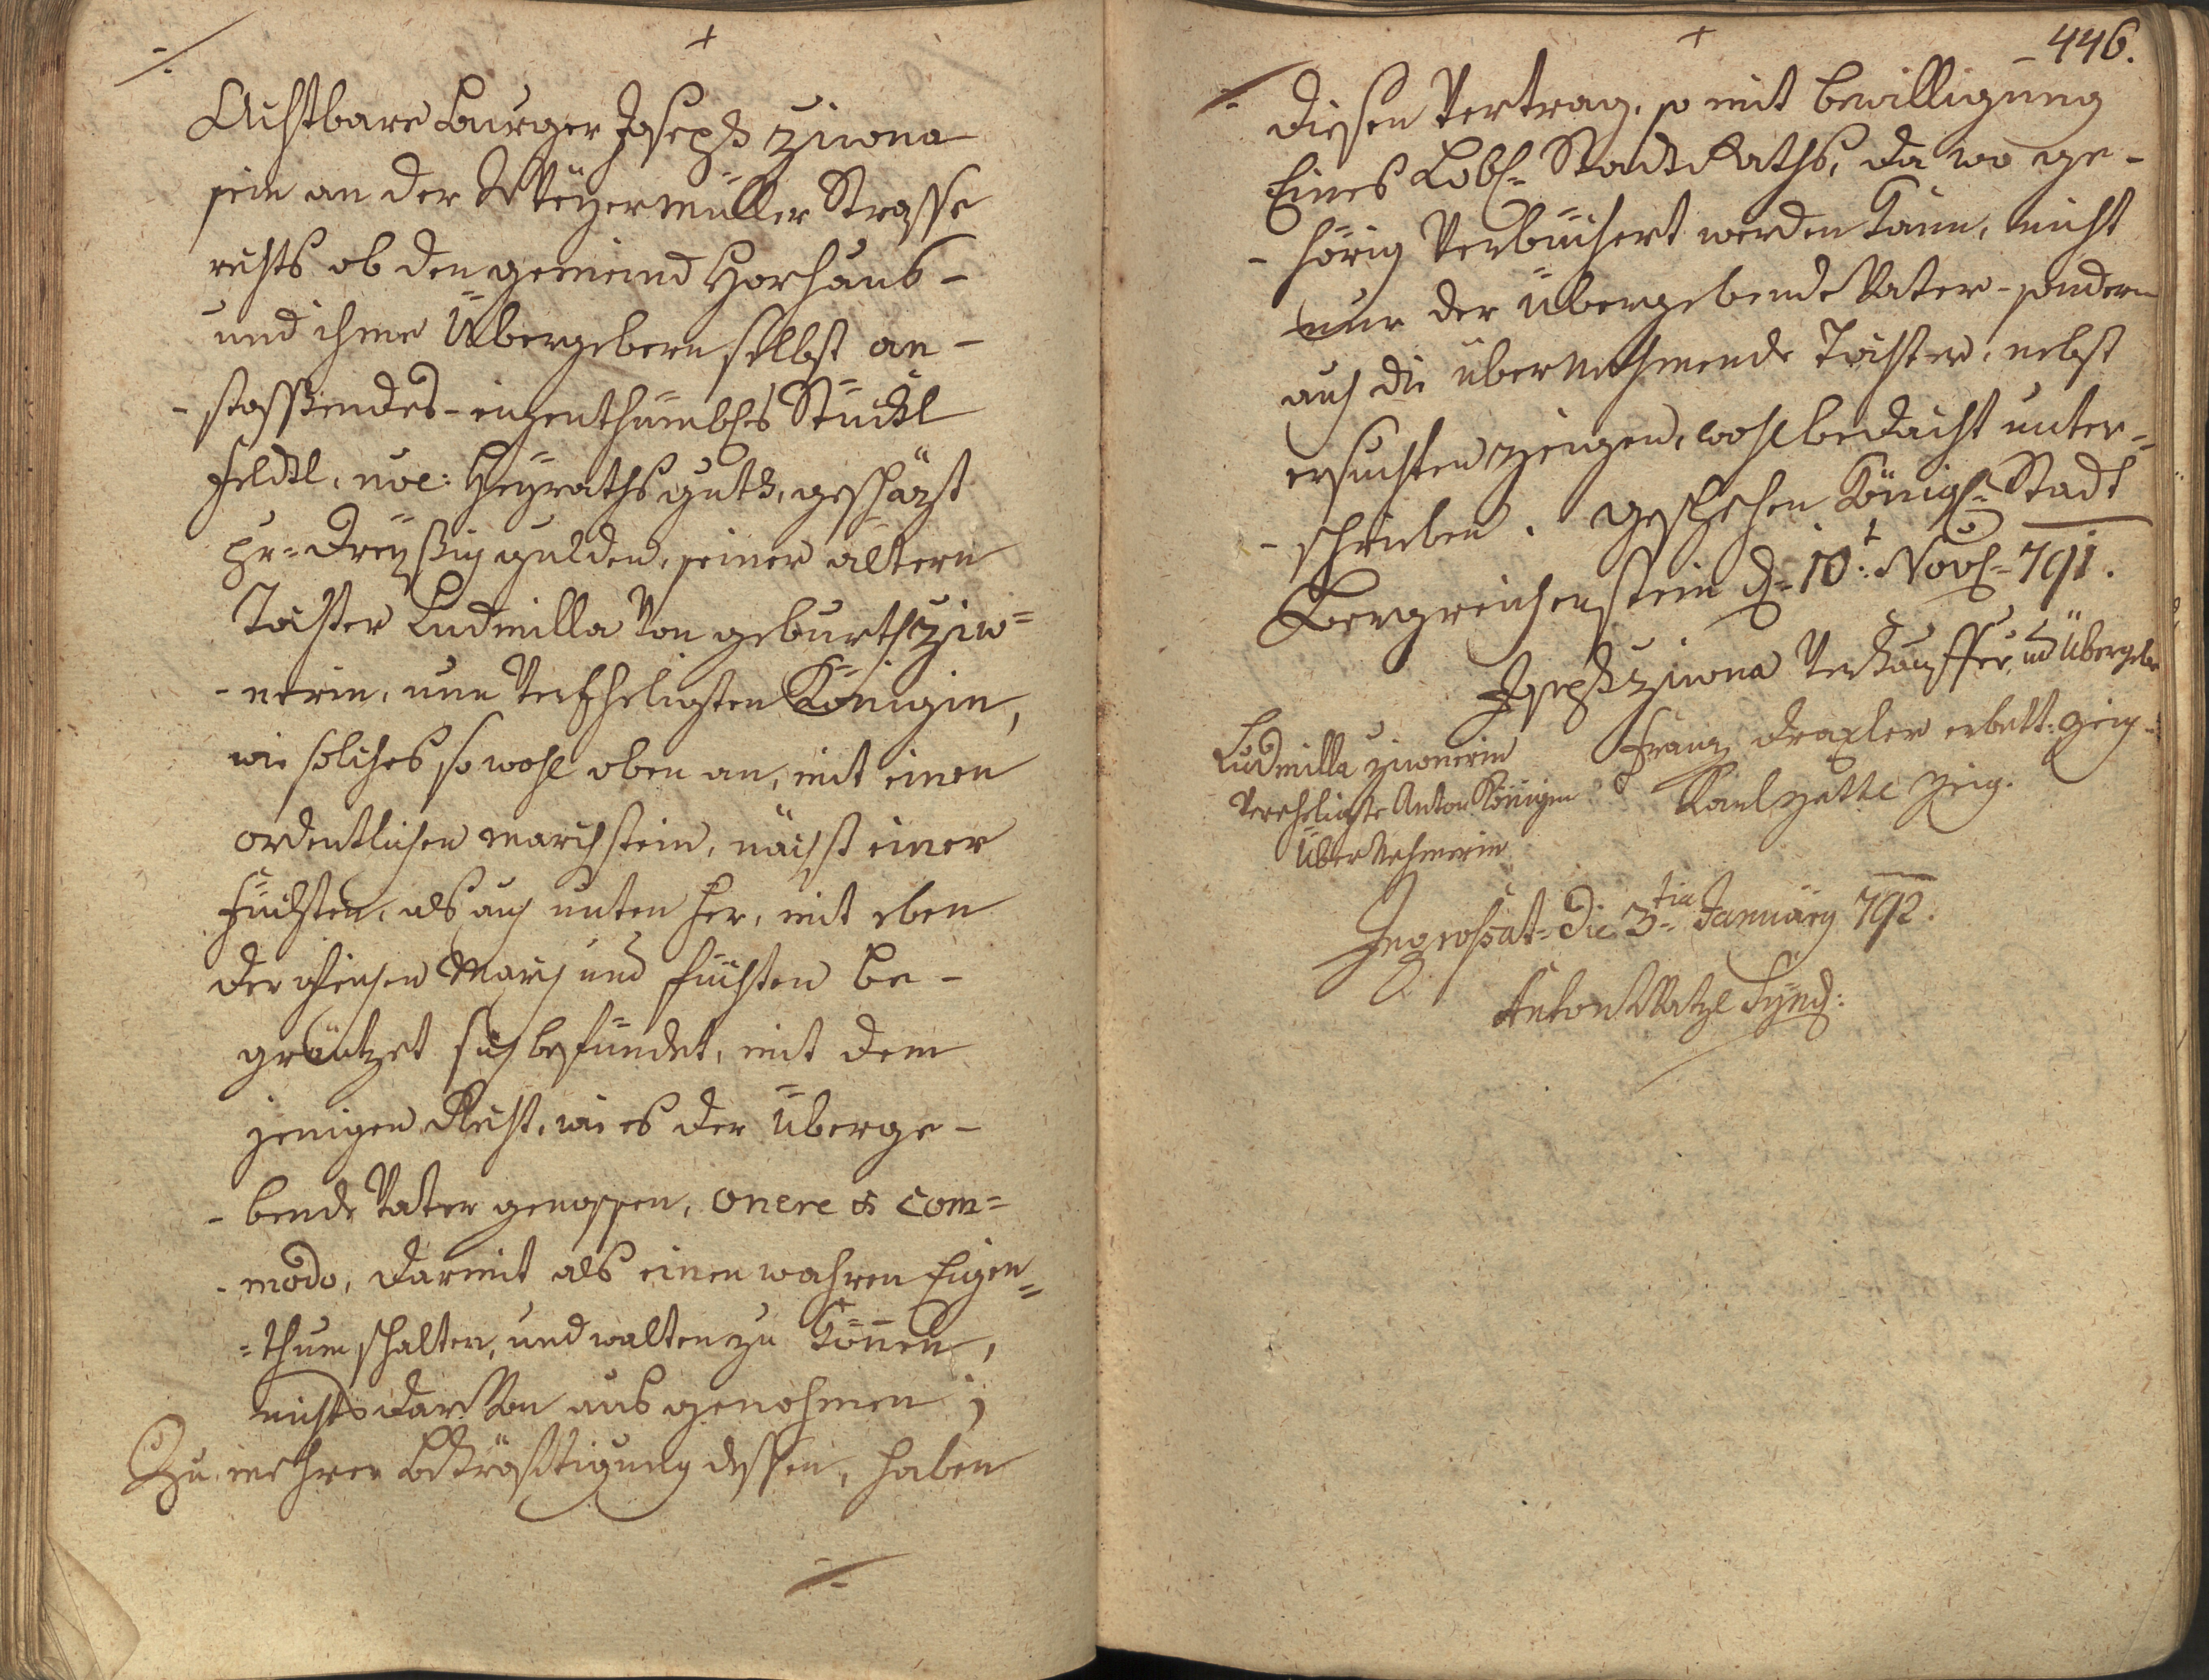 Achtbare Burger Joseph Ziwna
sein an der Meyermüller Strasse
rechts ob den gemeind Horhaus-
und ihme Übergebern selbst an-
-stossendes-eigenthumbles Stückl
Feldl, noe: Heyrathsguth, geschäzt
pr= dreyßig gulden, seiner ältern
Tochter Ludmilla von geburth Ziw=
-nerin, nun Verheligten Königin,
wie solches so wohl oben an, mit einen
ordentlichen march stein, nächst einer
Fuchsten, als auch unten her, mit eben
der March und fuchten be-
gräntzet sich befündet, mit dem
jenigen Recht, wie es der Überge-
-bende Vater genossen, onere & com=
-modo, darmit als einen wahren Eigen=
=thum schalten, und walten zu können,
nichts dar von ausgenohmen;
Zu mehrer Bekräfftigung dessen, haben
446.
diesen Vertrag, so mit bewilligung
Eines Lobl= Stadt Raths, da wo ge-
-hörig Verbüchert werden kann, nicht
nur der übergebende Vater - sondern
auch die übernehmende Tochter, nebst
ersuchten zeugen, wohl bedacht unter=
-schrieben. geschehen Königl= Stadt
Bergreichenstein d= 10t Nov= 791.
Joseph Ziwna Verkauffer, und Überge
Ludmilla Ziwnerin
Verehligte Anton Königin
Übernehmerin
Franz draxler erbett: Zeig
Karl Zeig.
Ingrossat= die 3=tia January 792.
Anton Watzl Synd: